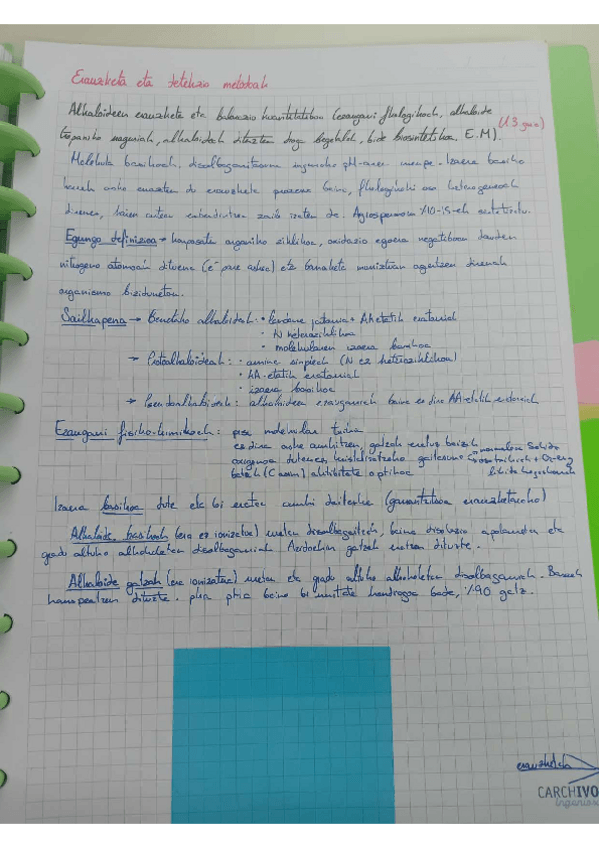 Erauzketa eta detekzio metodoak
Alkaloideen erauzketa eta balorazio kuantitatiboa (ezaugarri fisologikoak, alkaloide
(13 gaia)
tropaniko nagusiak, alkaloideak dituzten droga begetalak, bide biosintetikoa, E.M).
Molekula basikoak. disolbagarritasuna inguruko pH-aren menpe. Izaera basiko
berak asko errazten du erauzketa prozesua baina,
direnez, haien artean izaten da. Angiospermoen %10-15-ek sintetizatu.
Egungo definizioa → konposatu organiko ziklikoa, oxidazio egoera negatiboan dauden
nitrogeno atomoak dituena (e⁻ pare askea) eta banaketa murriztuan agertzen direnak
organismo bizidunetan.
Sailkapena → Benetako alkaloideak: • jatorria → AAetatik eratorriak
• N heteroziklikoa
• molekularen izaera basikoa
→ Protoalkaloideak: • amina sinpleak (N ez heteroziklikoa)
• AA-etatik eratorriak
• izaera basikoa
→ Pseudoalkaloideak: alkaloideen ezaugarriak baina ez dira AA-etatik eratorriak
Ezaugarri fisiko-kimikoak: pisu molekular txikia
ez dira aske aurkitzen, gatzak eratuz baizik
oxigenoa dutenez, kristalizatzeko gaitasuna → normalean solido
batzuk (C asim) aktibitate optikoa
Izaera basikoa dute eta bi eratan aurki daitezke (garrantzitsua erauzketarako)
Alkaloide baseak (era ez ionizatua) uretan disolbagaitzak, baina disolbatzaile apolarretan eta
gradu altuko alkoholetan disolbagarriak. Azidoekin gatzak eratzen dituzte.
Alkaloide gatzak (era ionizatua) uretan eta gradu altuko alkoholetan disolbagarriak. Baseak
hauspeatzen dituzte. pHa pKa baino bi unitate handiagoa bada, %90 gatz.
erauzketak
CARCHIVO
Ingenios